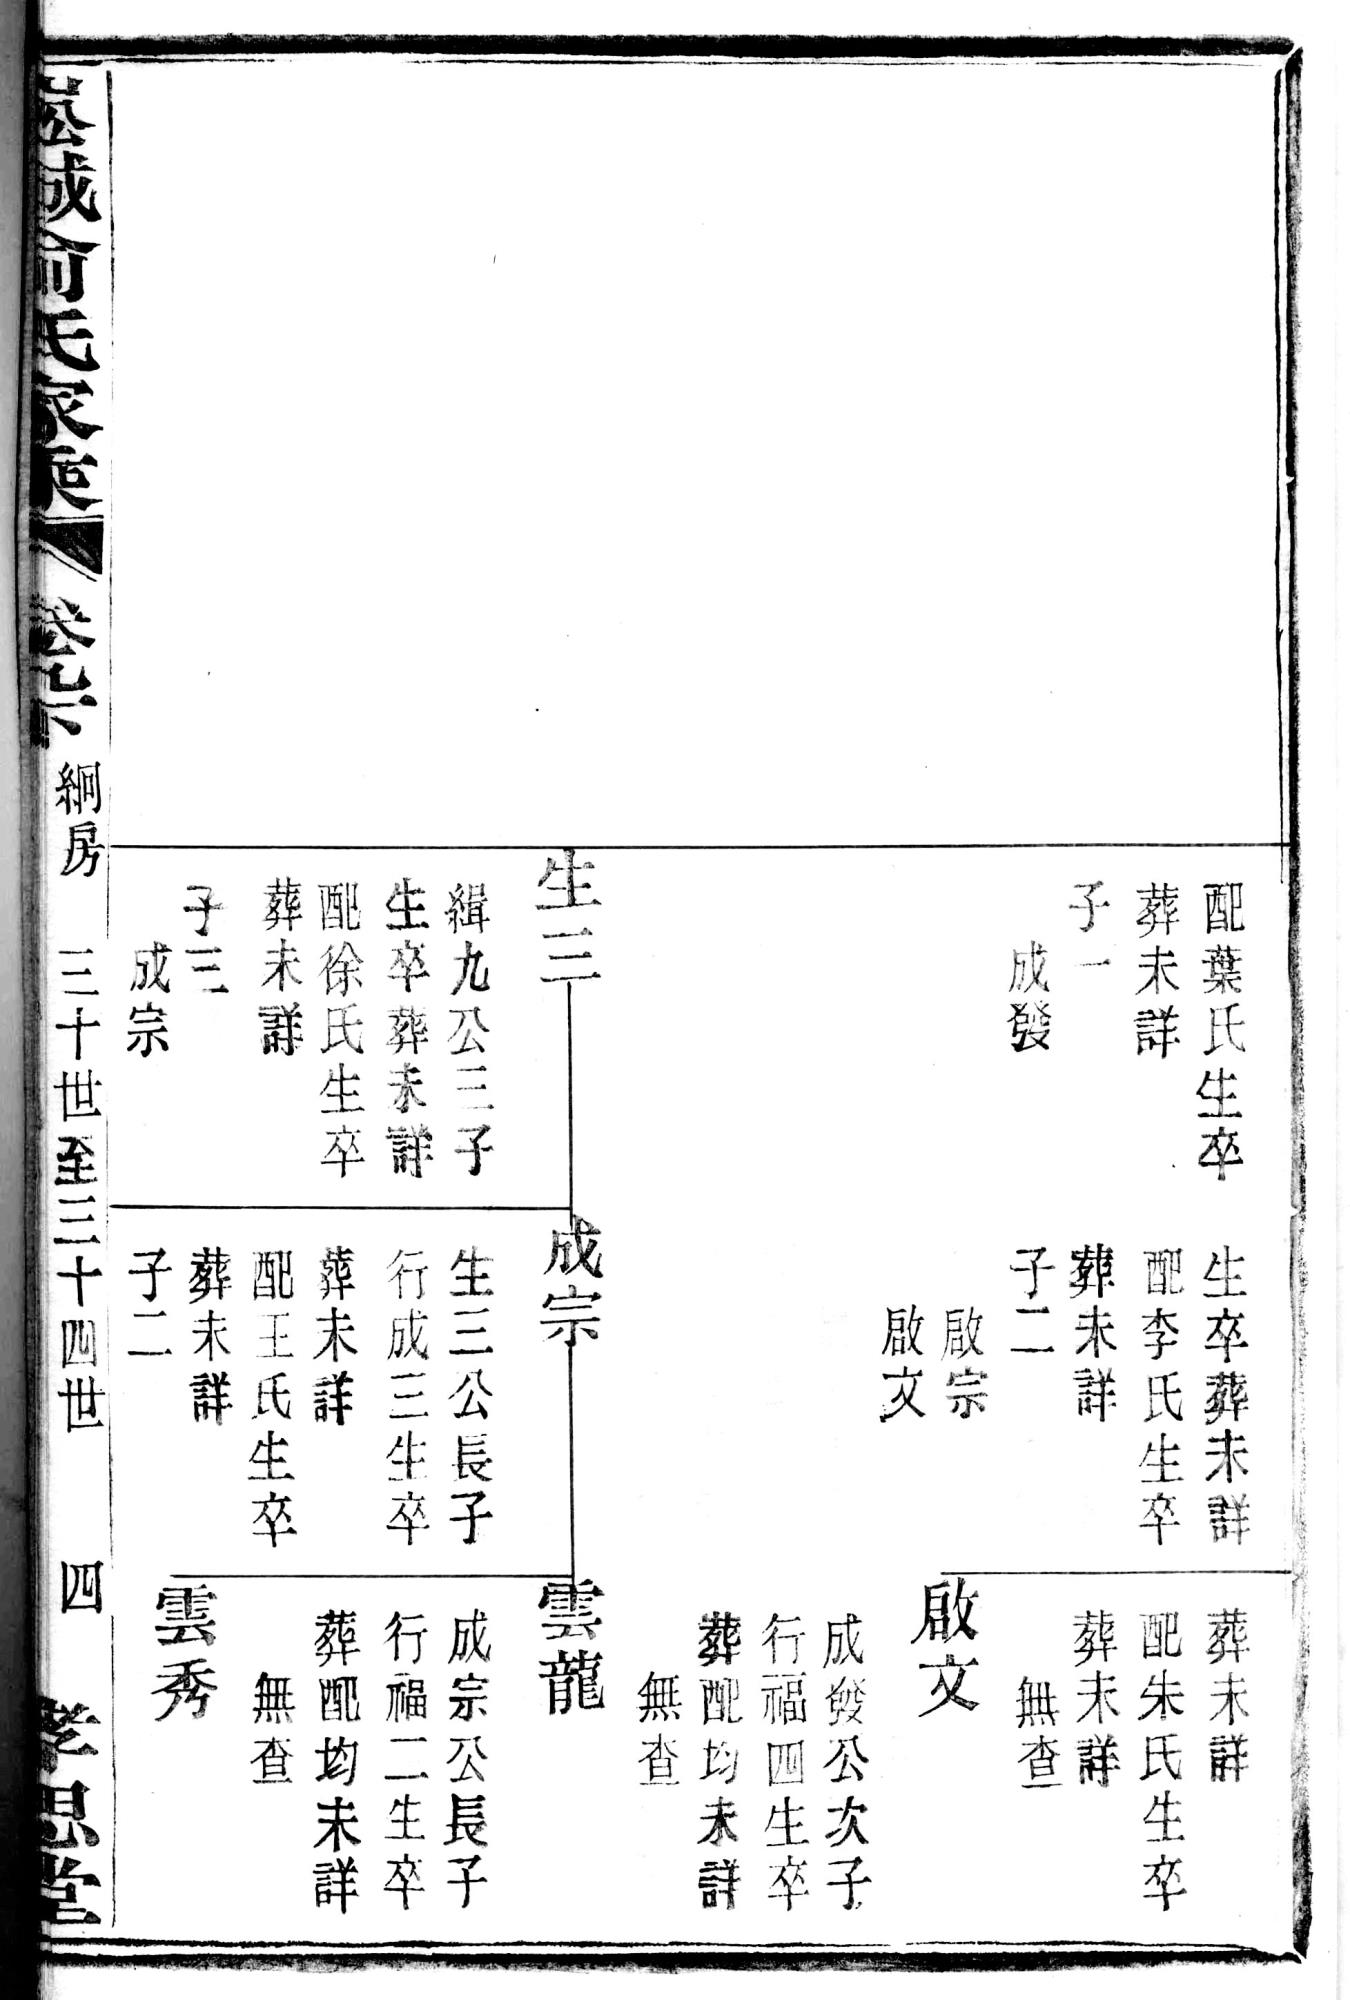 配葉氏生卒
葬未詳
子一
成發
生三
緝九公三子
生卒葬未詳
配徐氏生卒
葬未詳
子三
成宗
生卒葬未詳
配李氏生卒
葬未詳
子二
啟宗
啟文
成宗
生三公長子
行成三生卒
葬未詳
配王氏生卒
葬未詳
子二
葬未詳
配朱氏生卒
葬未詳
無查
啟文
成發公次子
行福四生卒
葬配均未詳
無查
雲龍
成宗公長子
行福二生卒
葬配均未詳
無查
雲秀
城俞氏家乘
卷
絅房
三十世至三十四世
四
孝思堂